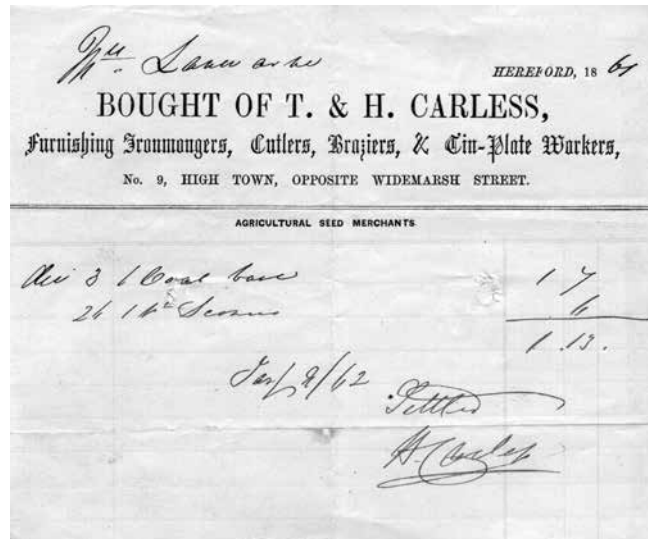 HEREFORD, 1861
BOUGHT OF T. & H. CARLESS,
Furnishing Ironmongers, Cutlers, Braziers, & Tin-Plate Workers,
No. 9, HIGH TOWN, OPPOSITE WIDEMARSH STREET.
AGRICULTURAL SEED MERCHANTS.
3 1 Coal 1 7
26 1 6
1 . 13 .
/62
Settled
H. Carless